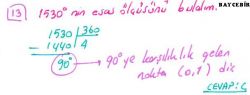 BAYCEBİR
13 1530° nin esas ölçüsünü bulalım.
1530 | 360
- 1440 4
90° → 90° ye karşılıklık gelen
nokta (0,1) dir
CEVAP: C